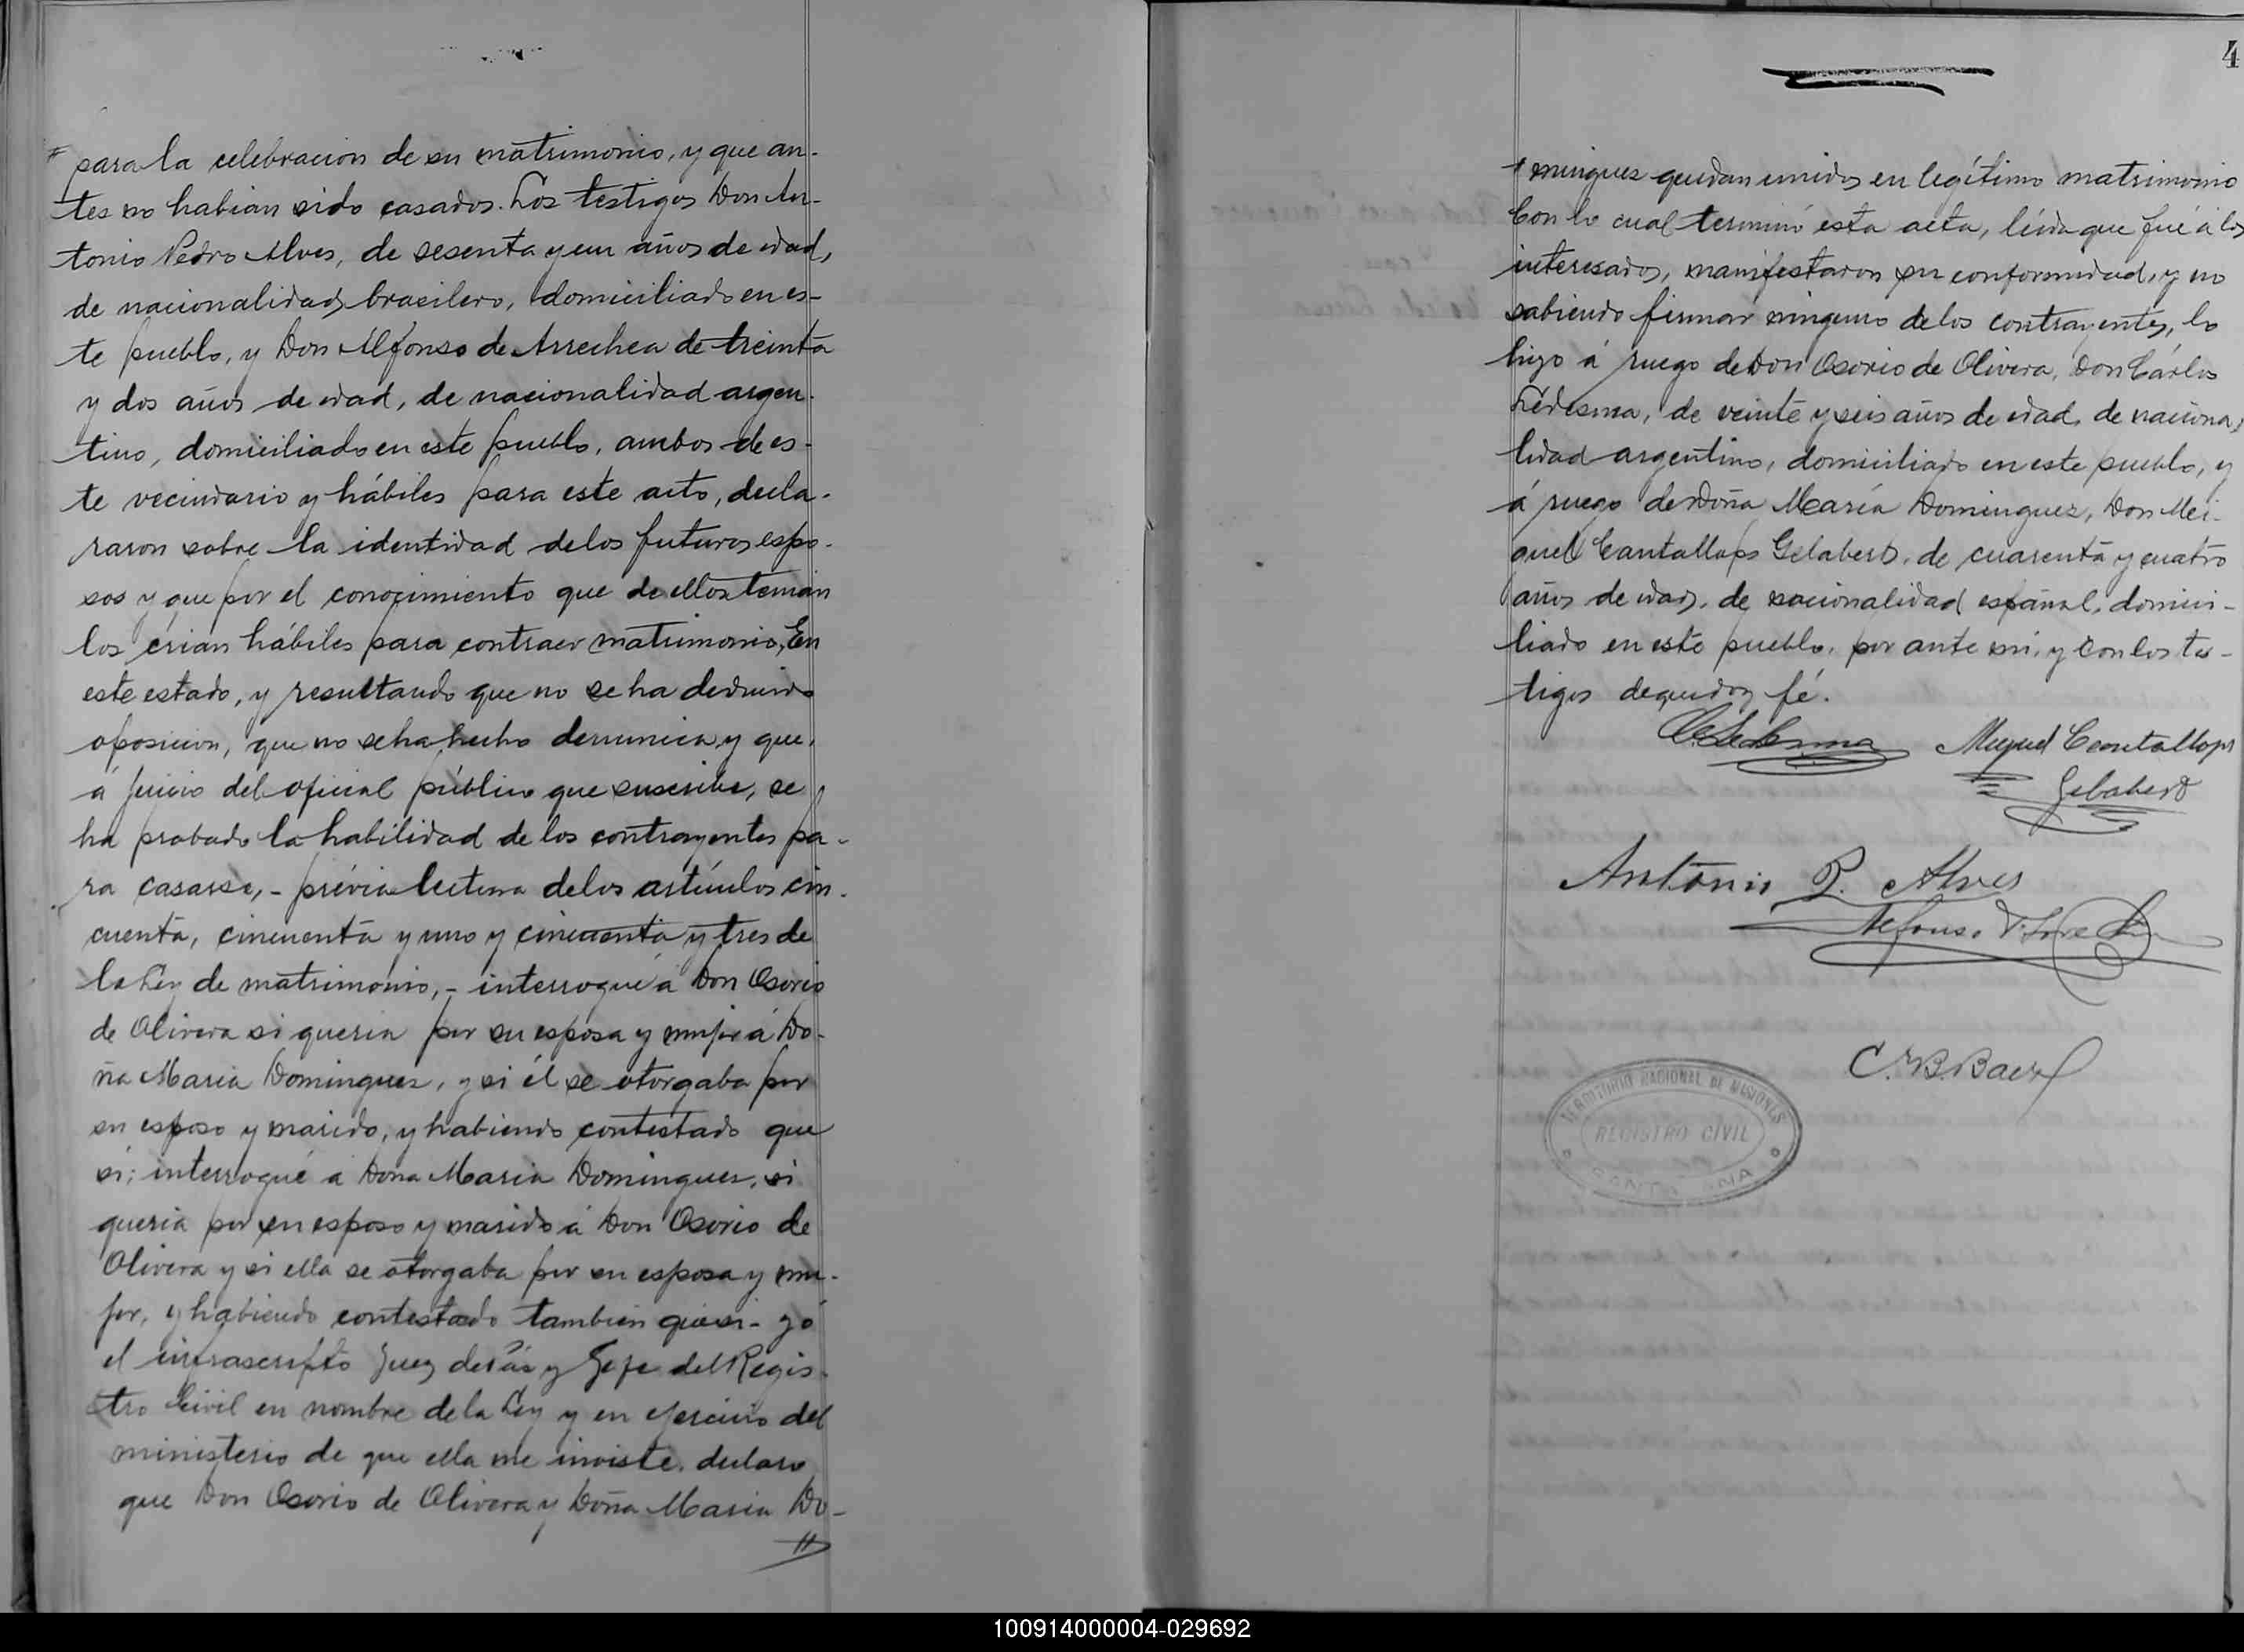 para la celebracion de su matrimonio, y que an-
tes no habian sido casados. Los testigos Don An-
tonio Pedro Alves, de sesenta y un años de edad,
de nacionalidad brasilero, domiciliado en es-
te pueblo, y Don Alfonso de Arrechea de treinta
y dos años de edad, de nacionalidad argen-
tino, domiciliado en este pueblo, ambos de es-
te vecindario y hábiles para este acto, decla-
raron sobre la identidad de los futuros espo-
sos y que por el conocimiento que de ellos tenian
los crian hábiles para contraer matrimonio, En
este estado, y resultando que no se ha deducido
oposicion, que no se ha hecho denuncia y que,
á juicio del oficial público que suscribe, se
ha probado la habilidad de los contrayentes pa-
ra casarse, - prévia lectura de los artículos cin-
cuenta, cincuenta y uno y cincuenta y tres de
la Ley de matrimonio, - interrogué á Don Osorio
de Olivera si queria por su esposa y mujer á Do-
ña Maria Dominguez, y si él se otorgaba por
su esposo y marido, y habiendo contestado que
si; interrogué á Doña Maria Dominguez, si
queria por su esposo y marido á Don Osorio de
Olivera y si ella se otorgaba por su esposa y mu-
jer, y habiendo contestado tambien que si - yó
el infrascripto Juez de Páz y Gefe del Regis-
tro Civil en nombre de la Ley y en ejercicio del
ministerio de que ella me inviste, declaro
que Don Osorio de Olivera y Doña Maria Do-
4
minguez quedan unidos en legítimo matrimonio
Con lo cual terminó esta acta, leida que fué á los
interesados, manifestaron su conformidad, y no
sabiendo firmar ninguno de los contrayentes, lo
hizo á ruego de Don Osorio de Olivera, Don Cárlos
Ledesma, de veinte y seis años de edad, de naciona
lidad argentino, domiciliado en este pueblo, y
á ruego de Doña María Dominguez, Don Mi-
guel Cantallops Gelabert, de cuarenta y cuatro
años de edad, de nacionalidad español, domici-
liado en este pueblo, por ante mi, y con los tes-
tigos de que doy fé.
C. Ledesma Miguel Cantallops
Gelabert
Antonio P. Alves
Alfonso
C. B. Baez
TERRITORIO NACIONAL DE MISIONES
REGISTRO CIVIL
SANTA ANA
100914000004-029692